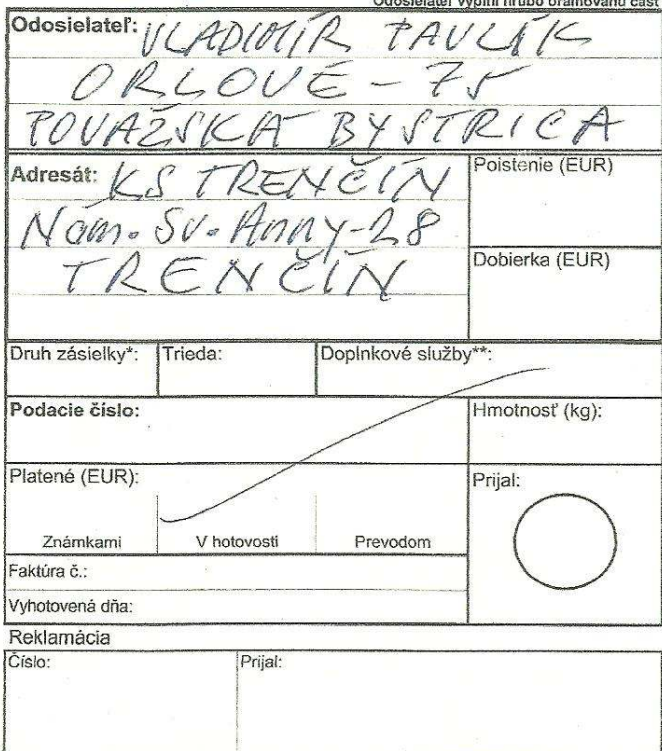 Odosielateľ vyplní hrubo orámovanú časť
Odosielateľ: VLADIMÍR PAVLÍK
ORLOVÉ - 75
POVAŽSKÁ BYSTRICA
Adresát: KS TRENČÍN
Nám. SV. Anny-28
TRENČÍN
Poistenie (EUR)
Dobierka (EUR)
Druh zásielky*: Trieda: Doplnkové služby**:
Podacie číslo: Hmotnosť (kg):
Platené (EUR): Prijal:
Známkami V hotovosti Prevodom
Faktúra č.:
Vyhotovená dňa:
Reklamácia
Číslo: Prijal: